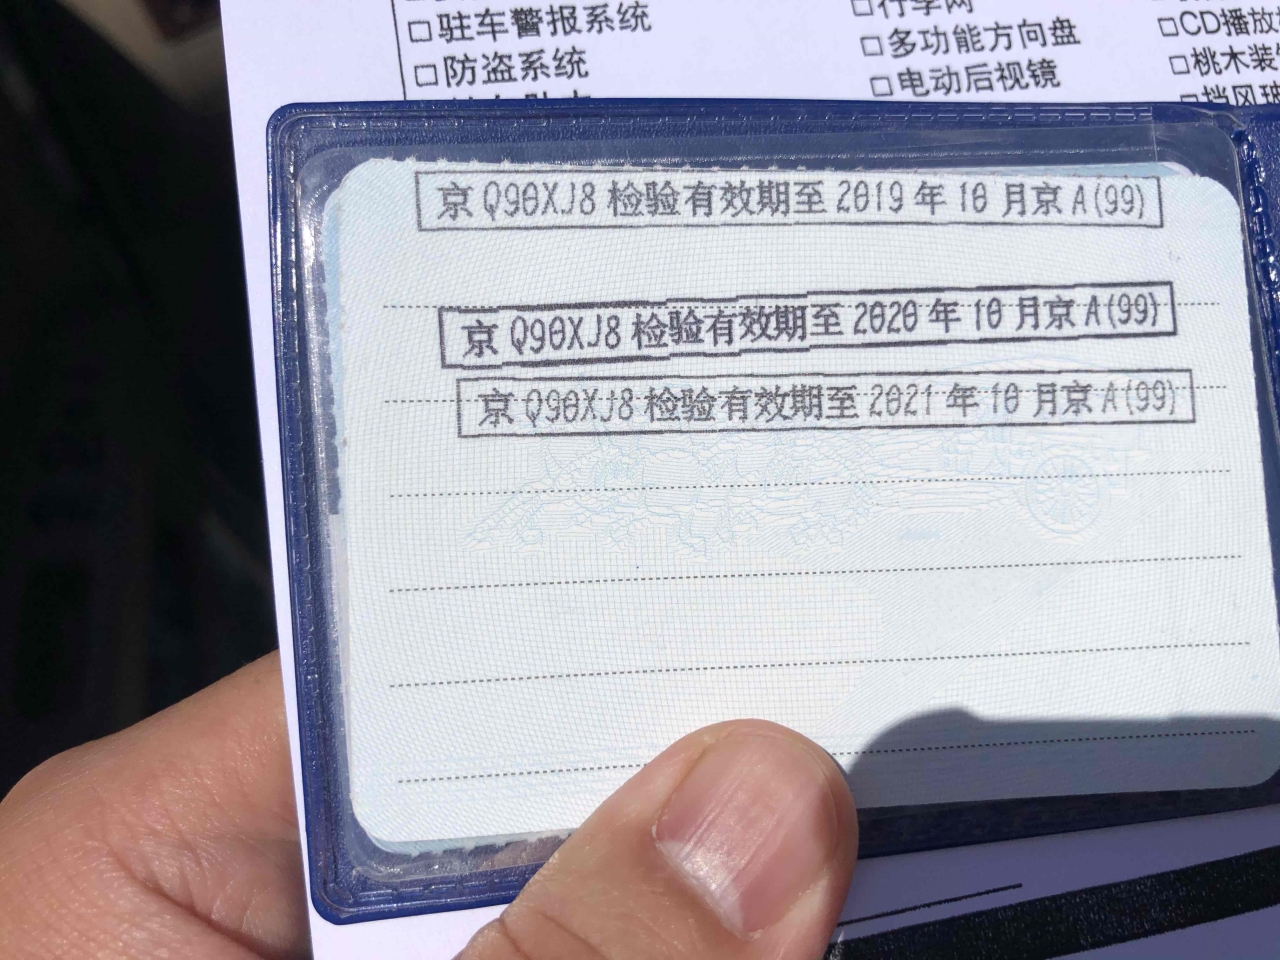 □驻车警报系统
□防盗系统
□多功能方向盘
□电动后视镜
□CD播放
□桃木装
京 Q90XJ8 检验有效期至 2019 年 10 月京 A(99)
京 Q90XJ8 检验有效期至 2020 年 10 月京 A(99)
京 Q90XJ8 检验有效期至 2021 年 10 月京 A(99)